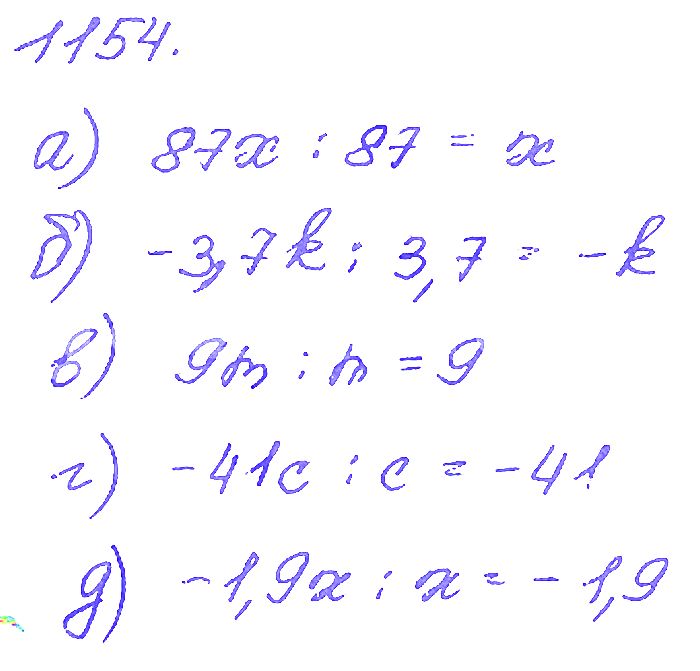 1154.
а) 87x : 87 = x
б) -3,7k : 3,7 = -k
в) 9m : m = 9
г) -41c : c = -41
д) -1,9x : x = -1,9